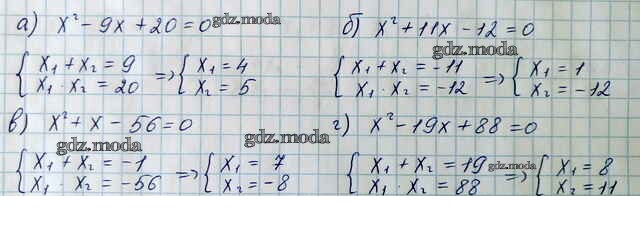 а) x² - 9x + 20 = 0 gdz.moda
{ x₁ + x₂ = 9
x₁ · x₂ = 20 => { x₁ = 4
x₂ = 5
б) x² + 11x - 12 = 0
gdz.moda
{ x₁ + x₂ = -11
x₁ · x₂ = -12 => { x₁ = 1
x₂ = -12
в) x² + x - 56 = 0
gdz.moda
{ x₁ + x₂ = -1
x₁ · x₂ = -56 => { x₁ = 7
x₂ = -8
gdz.moda
г) x² - 19x + 88 = 0
{ x₁ + x₂ = 19 gdz.moda
x₁ · x₂ = 88 => { x₁ = 8
x₂ = 11